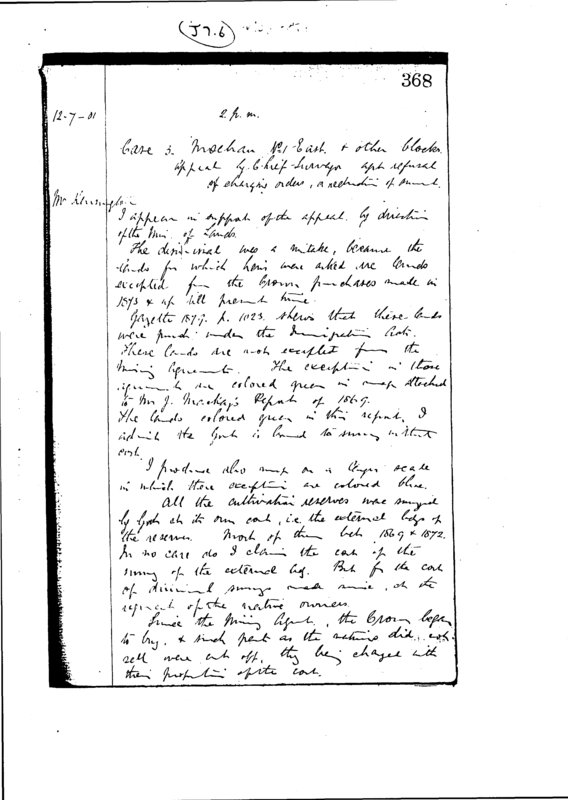 (J7.6)
368
12-7-01
2 p.m.
Case 3. Moehau No1 East & other blocks.
appeal by Chief Surveyor agst refusal
of charging orders, or reduction of amount.
Mr Kensington
I appear in support of the appeal, by direction
of the Min. of Lands.
The dismissal was a mistake, because the
lands for which liens were asked are lands
excepted from the Crown purchases made in
1873 & up till present time.
Gazette 1879. p. 1023. shews that these lands
were purchd under the Immigration Acts.
These lands are not excepted from the
Mining Agreements. The exceptions in those
agreements are colored green in map attached
to Mr J. Mackay's Report of 1869.
The lands colored green in this report, I
admit the Govt is bound to survey without
cost.
I produce also map on a larger scale
in which these exceptions are colored blue.
All the cultivation reserves were surveyed
by Govt at its own cost, i.e. the external bdys of
the reserves. Most of them bet. 1869 & 1872.
In no case do I claim the cost of the
survey of the external bdy. But for the cost
of divisional surveys made since, at the
request of the native owners.
Since the Mining Agmt, the Crown began
to buy, & such part as the natives did not
sell were cut off, they being charged with
their proportion of the cost.